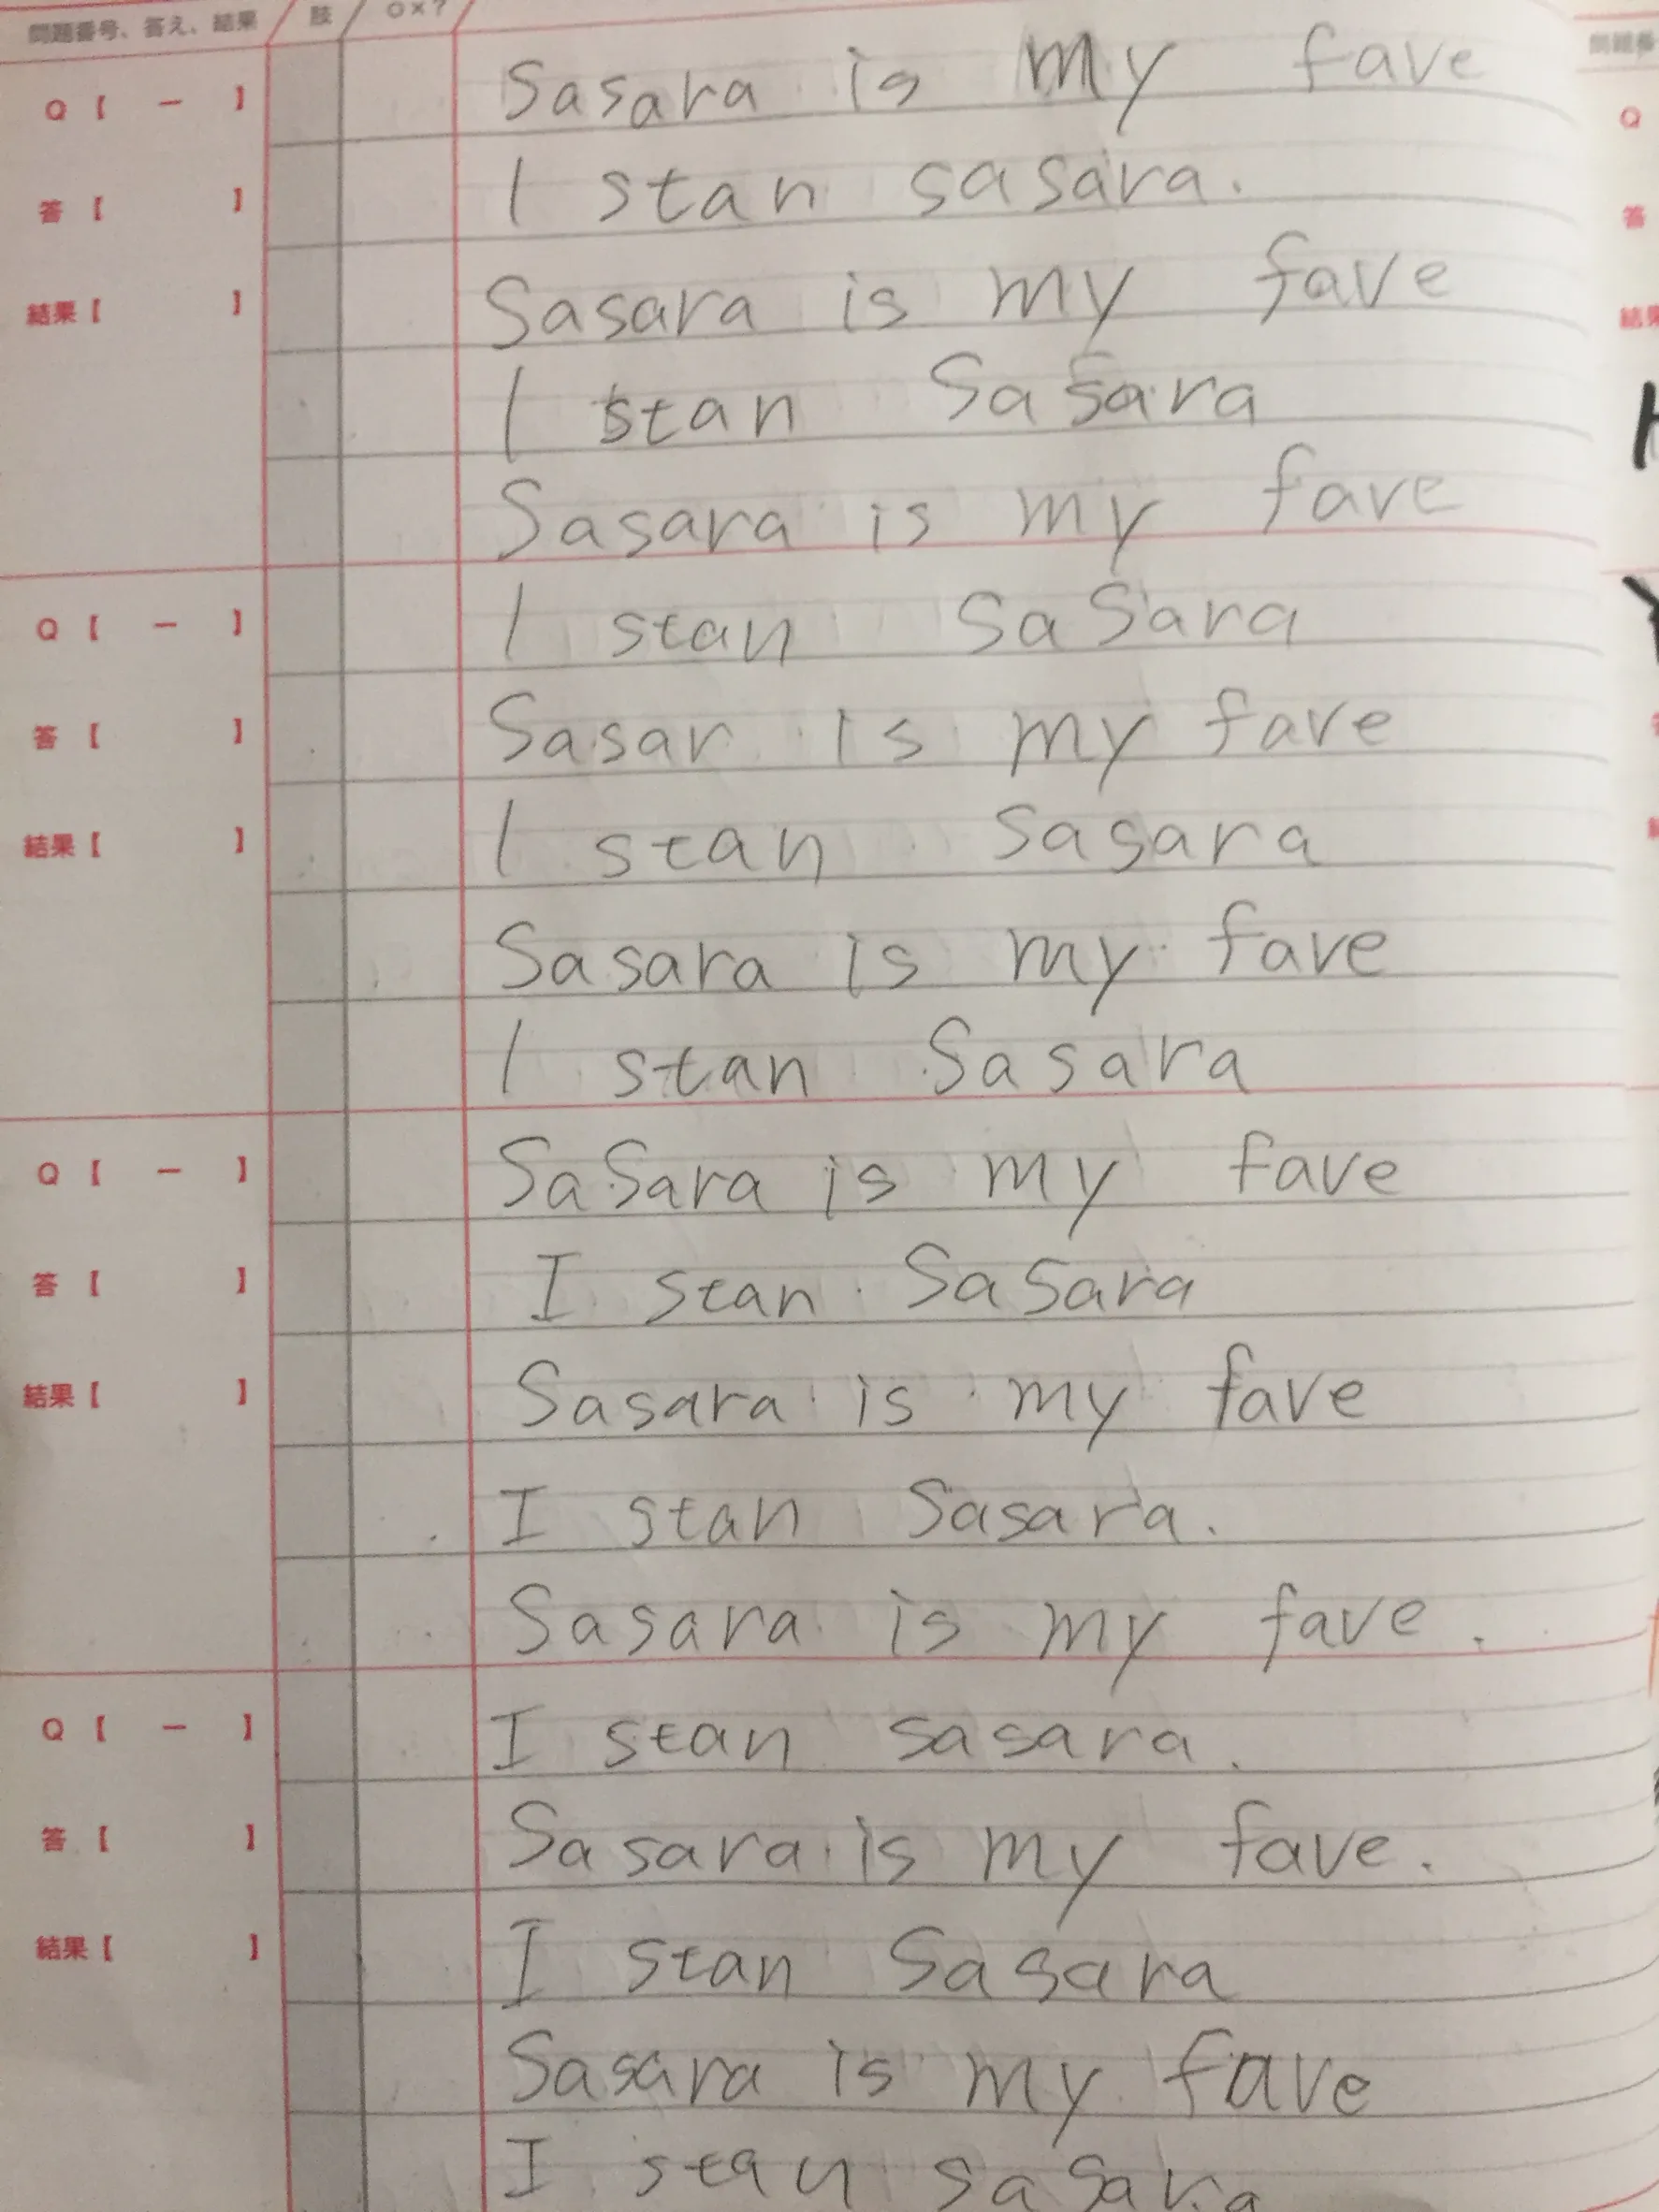 問題番号、答え、結果 肢 ○×?
Sasara is my fave
Q【 － 】
I stan sasara.
答【 】
Sasara is my fave
結果【 】
I stan Sasara
Sasara is my fave
I stan SaSara
Q【 － 】
Sasar is my fave
答【 】
I stan Sasara
結果【 】
Sasara is my fave
I stan Sasara
SaSara is my fave
Q【 － 】
I stan SaSara
答【 】
Sasara is my fave
結果【 】
I stan Sasara.
Sasara is my fave.
I stan sasara.
Q【 － 】
Sasara is my fave.
答【 】
I stan Sasara
結果【 】
Sasara is my fave
I stan sasara
Q
答